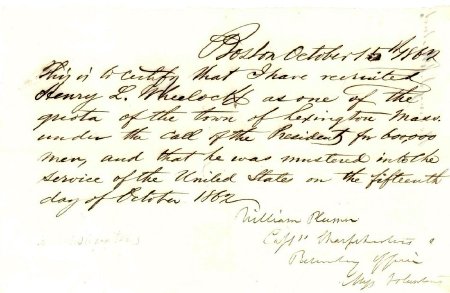 Boston October 15th 1862
This is to certify that I have recruited
Henry L. Wheelock as one of the
quota of the town of Lexington Mass.
under the call of the President for 600,000
men, and that he was mustered into the
service of the United States on the fifteenth
day of October 1862
William Plumer
Capt. Sharpshooters &
Recruiting Officer
Mass Volunteers